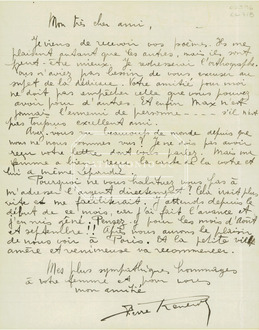 Mon très cher ami,
Je viens de recevoir vos poèmes. Ils me
plaisent autant que les autres, mais ils sont
peut-être mieux. Je redresserai l'orthographe.
Vous n'avez pas besoin de vous excuser au
sujet de la dédicace. Votre amitié pour moi
ne doit pas empêcher celle que vous pouvez
avoir pour d'autres et enfin Max n'est
jamais l'ennemi de personne — s'il n'est
pas toujours excellent ami.
Avez-vous vu beaucoup de monde depuis que
nous ne nous sommes vus? Je
reçu votre lettre
femme a bien reçu la vôtre et
lui a même répondu.
Pourquoi ne vous habituez vous pas à
m'adresser l'argent directement? Cela irait plus
vite et me faciliterait. J'attends depuis le
début de ce mois, car j'ai fait l'avance et
pour les mois d'août
et septembre!! Après nous aurons le plaisir
de nous voir à Paris. Et la petite vie
amère et venimeuse va recommencer.
Mes plus sympathiques hommages
à votre femme et pour vous
mon amitié
Pierre Reverdy